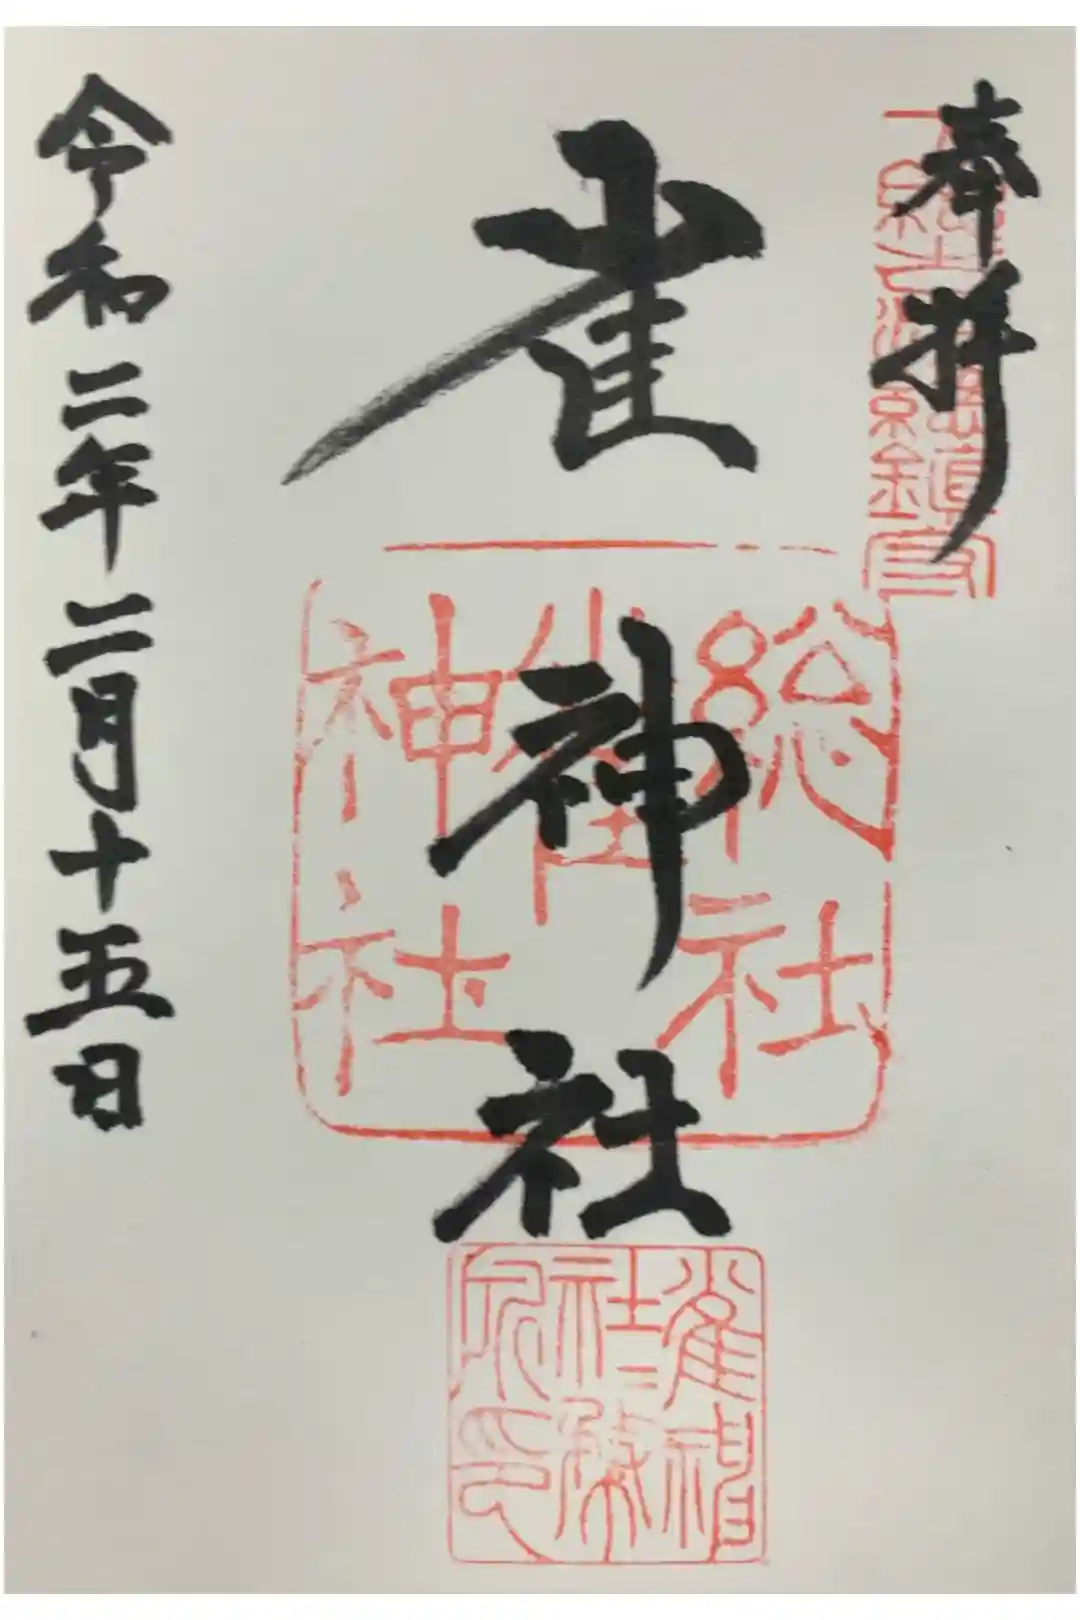 奉拝
雀神社
令和二年二月十五日
総社
雀
神社
雀神
社務
印